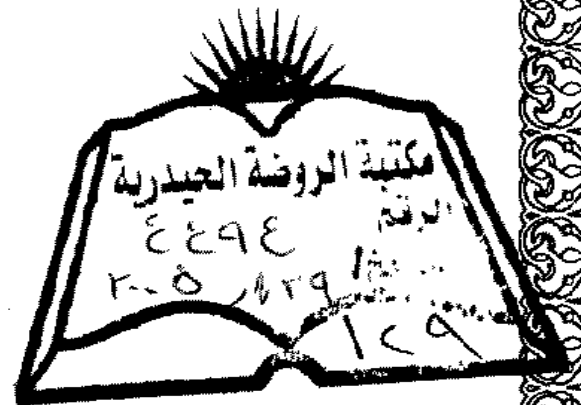 مكتبة الروضة الحيدرية
الرقم
٤٤٩٤
٢٠٠٥
١٢٩